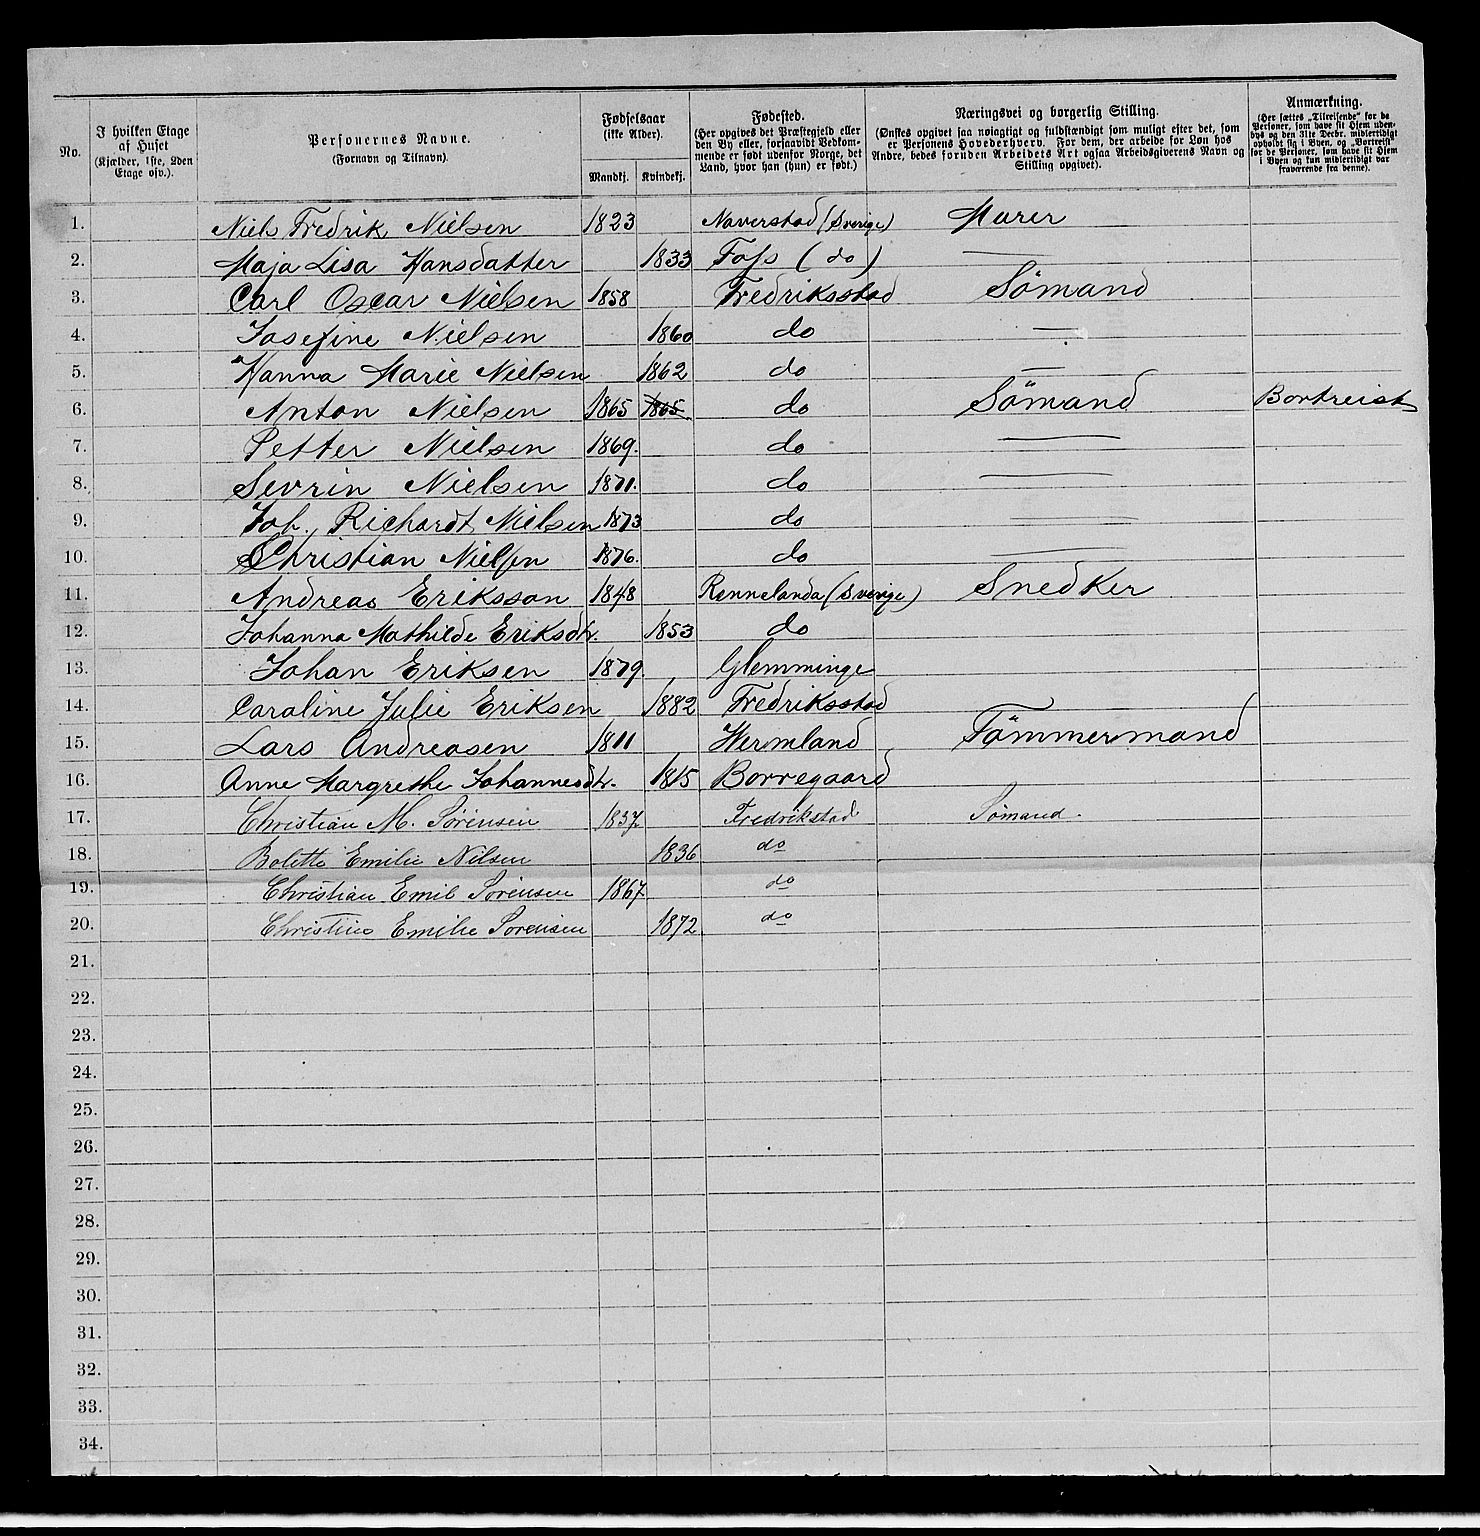 No.
I hvilken Etage af Huset (Kjælder, 1ste, 2den Etage osv.).
Personernes Navne. (Fornavn og Tilnavn).
Fødselsaar (ikke Alder).
Mandkj. Kvindekj.
Fødested. (Her opgives det Præstegjeld eller den By eller, forsaavidt Vedkommende er født udenfor Norge, det Land, hvor han (hun) er født.)
Næringsvei og borgerlig Stilling. (Ønskes opgivet saa nøiagtigt og fuldstændigt som muligt efter det, som er Personens Hovederhverv. For dem, der arbeide for Løn hos Andre, bedes foruden Arbeidets Art ogsaa Arbeidsgiverens Navn og Stilling opgivet).
Anmærkning. (Her sættes „Tilreisende“ for de Personer, som have sit Hjem udenbys og den 31te Decbr. midlertidigt opholdt sig i Byen, og „Bortreist“ for de Personer, som have sit Hjem i Byen og kun midlertidigt var fraværende fra denne).
1. Niels Fredrik Nielsen 1823 Naverstad (Sverige) Murer
2. Maja Lisa Hansdatter 1833 Foss (do) —
3. Carl Oscar Nielsen 1858 Fredriksstad Sömand
4. Josefine Nielsen 1860 do —
5. Hanna Marie Nielsen 1862 do —
6. Anton Nielsen 1865 1865 do Sömand Bortreist
7. Petter Nielsen 1869. do —
8. Sevrin Nielsen 1871. do —
9. Joh. Richardt Nielsen 1873 do —
10. Christian Nielsen 1876. do —
11. Andreas Eriksson 1848 Rennelanda (Sverige) Snedker
12. Johanna Mathilde Eriksdtr. 1853 do
13. Johan Eriksen 1879. Glemminge
14. Caroline Julie Eriksen 1882 Fredriksstad
15. Lars Andreasen 1811 Wermland Tömmermand
16. Anne Margrethe Johannesdtr. 1815 Borregaard
17. Christian M. Sørensen 1837. Fredrikstad Sømand.
18. Bolette Emilie Nilsen 1836 do
19. Christian Emil Sørensen 1867. do
20. Christine Emilie Sorensen 1872. do
21.
22.
23.
24.
25.
26.
27.
28.
29.
30.
31.
32.
33.
34.